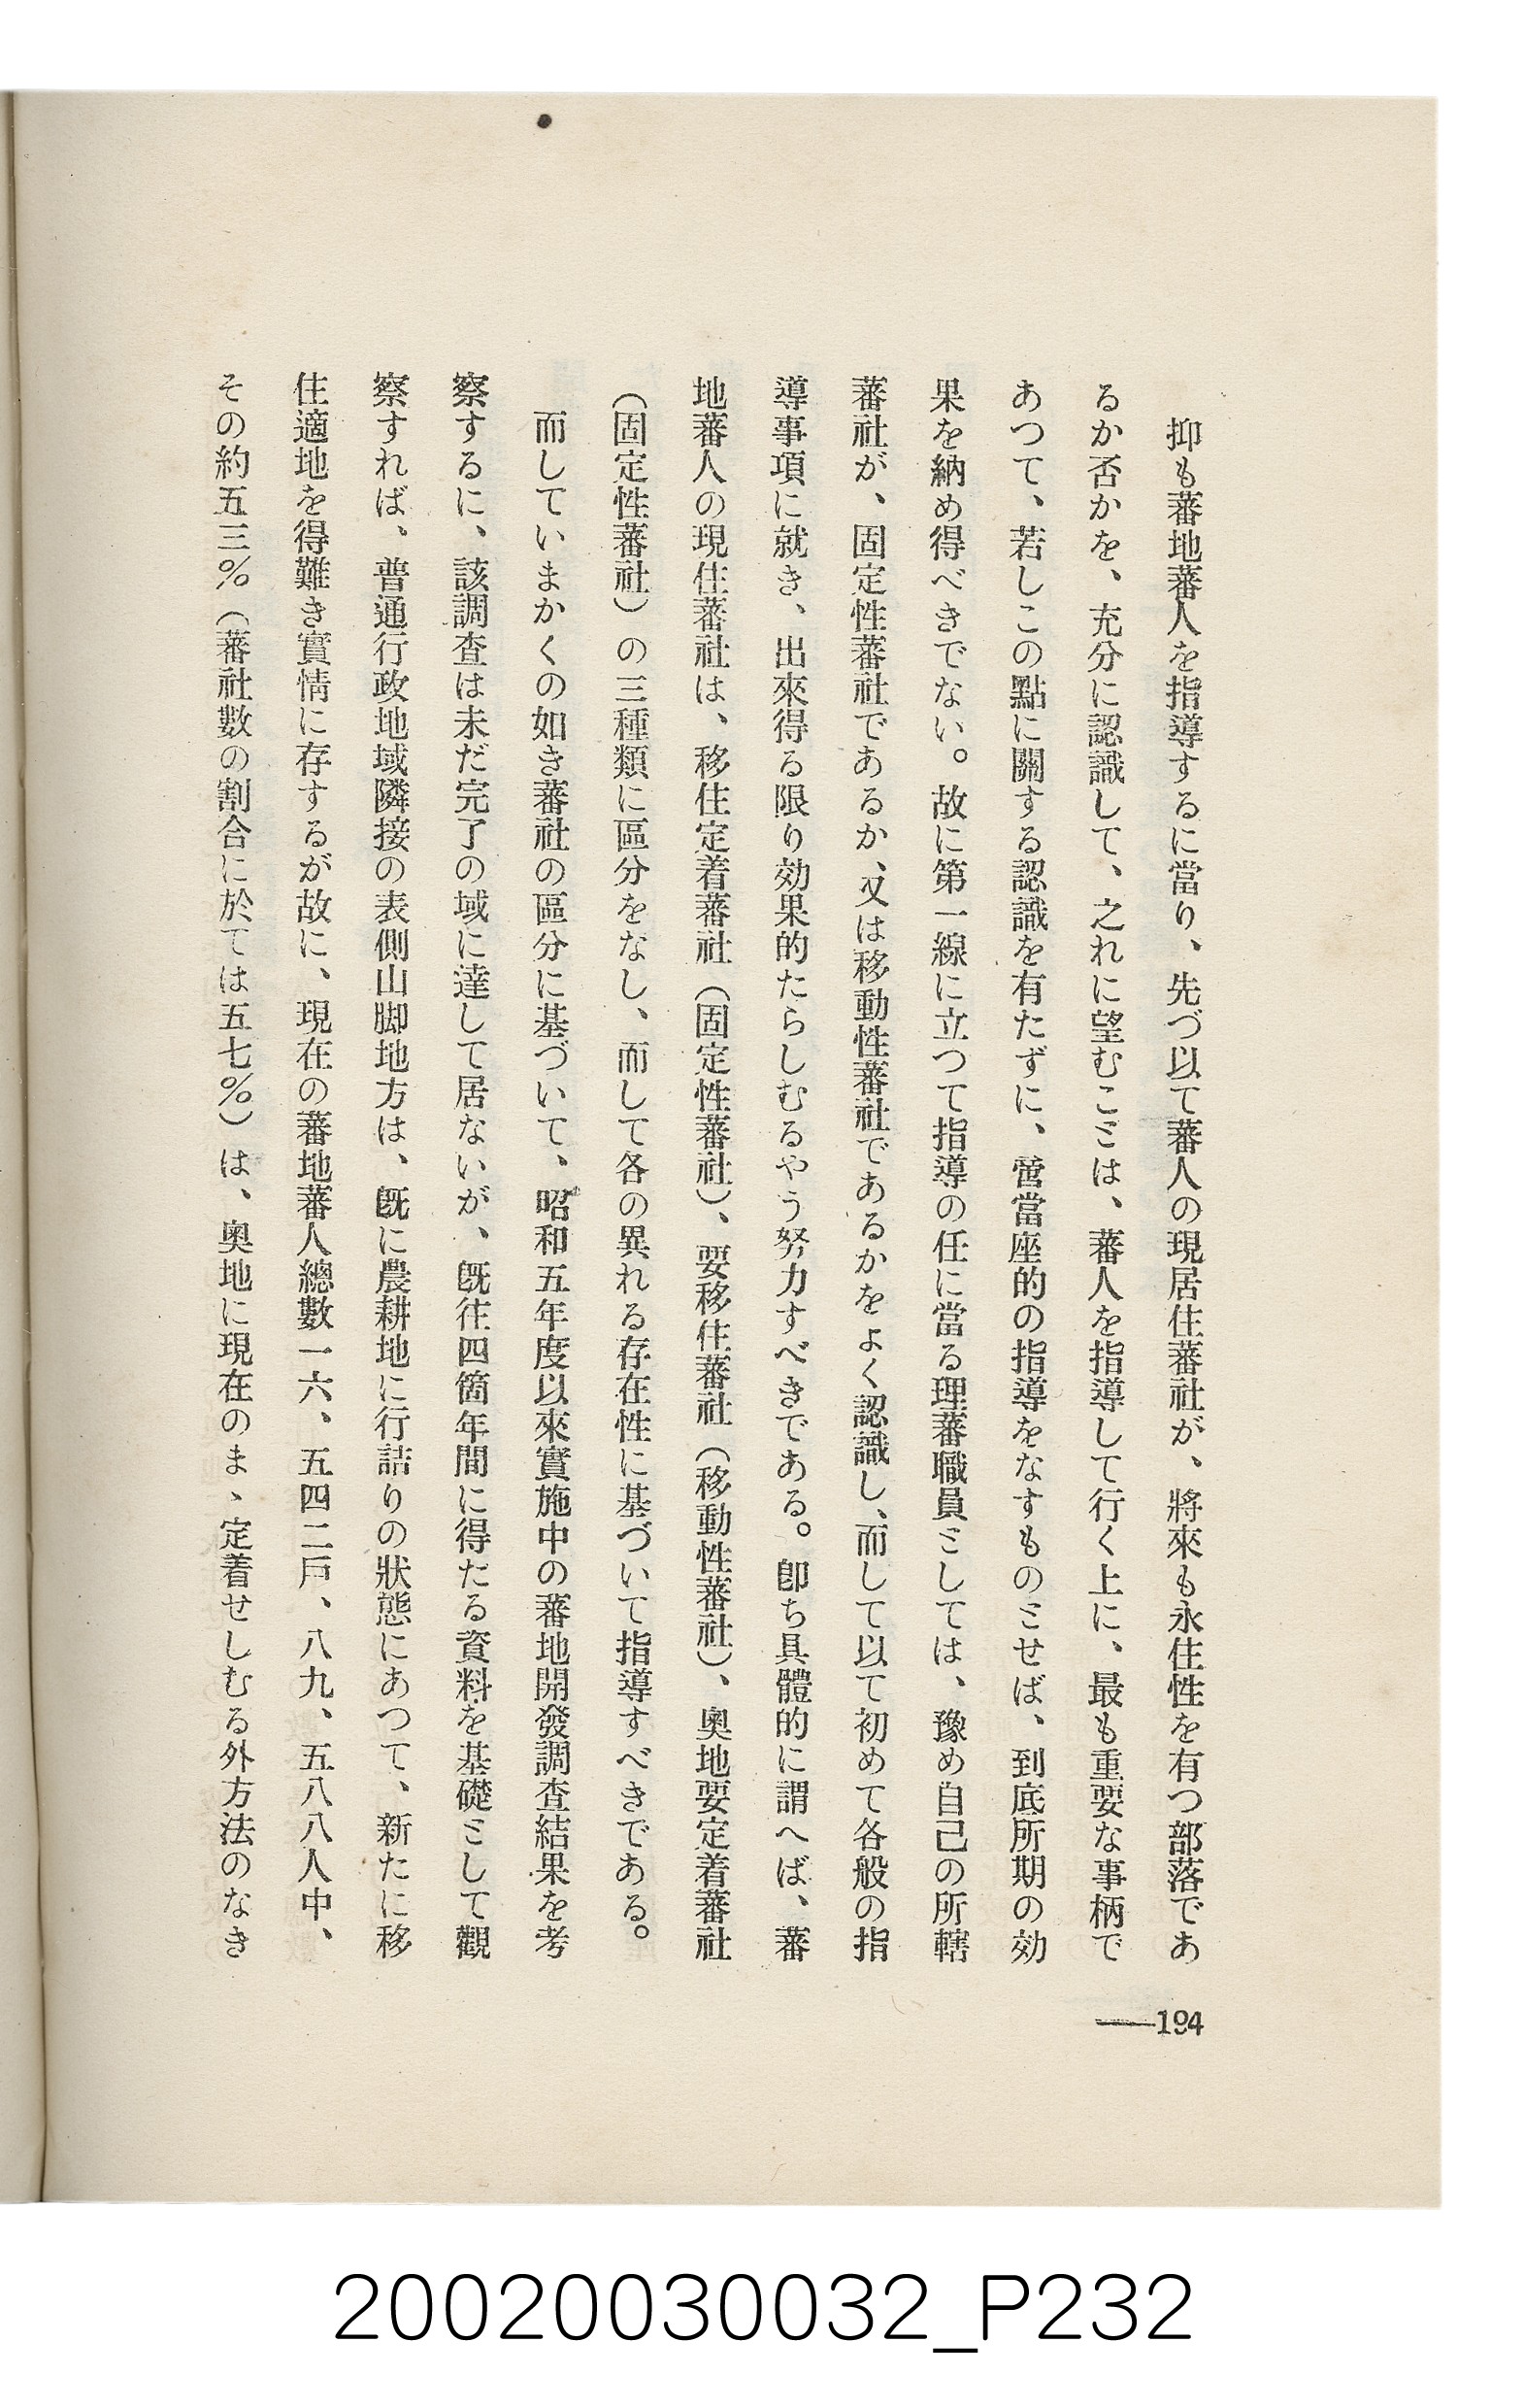 抑も蕃地蕃人を指導するに當り、先づ以て蕃人の現居住蕃社が、將來も永住性を有つ部落であ
るか否かを、充分に認識して、之れに望むことは、蕃人を指導して行く上に、最も重要な事柄で
あつて、若しこの點に關する認識を有たずに、啻當座的の指導をなすものとせば、到底所期の効
果を納め得べきでない。故に第一線に立つて指導の任に當る理蕃職員としては、豫め自己の所轄
蕃社が、固定性蕃社であるか、又は移動性蕃社であるかをよく認識し、而して以て初めて各般の指
導事項に就き、出來得る限り効果的たらしむるやう努力すべきである。卽ち具體的に謂へば、蕃
地蕃人の現住蕃社は、移住定着蕃社（固定性蕃社）、要移住蕃社（移動性蕃社）、奥地要定着蕃社
（固定性蕃社）の三種類に區分をなし、而して各の異れる存在性に基づいて指導すべきである。
而していまかくの如き蕃社の區分に基づいて、昭和五年度以來實施中の蕃地開發調査結果を考
察するに、該調査は未だ完了の域に達して居ないが、既往四箇年間に得たる資料を基礎として觀
察すれば、普通行政地域隣接の表側山脚地方は、既に農耕地に行詰りの狀態にあつて、新たに移
住適地を得難き實情に存するが故に、現在の蕃地蕃人總數一六、五四二戸、八九、五八八人中、
その約五三％（蕃社數の割合に於ては五七％）は、奥地に現在のまゝ定着せしむる外方法のなき
——194
20020030032_P232